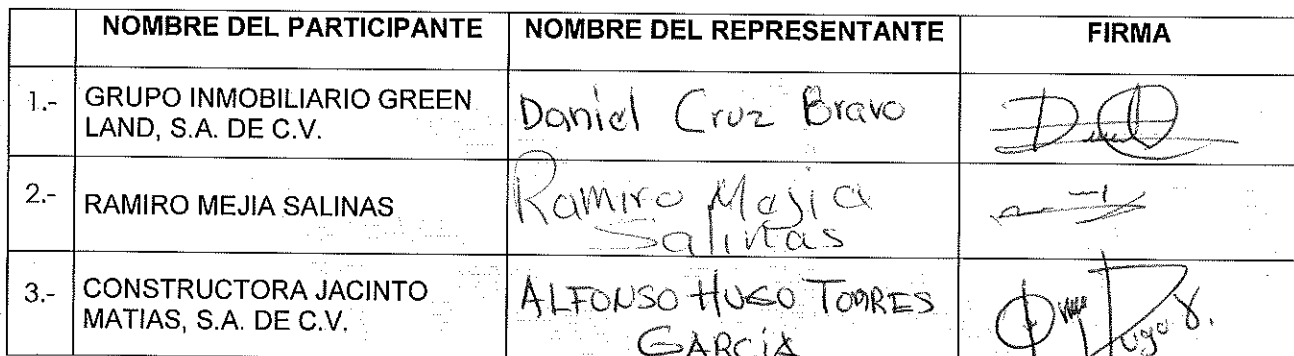 NOMBRE DEL PARTICIPANTE NOMBRE DEL REPRESENTANTE FIRMA
1.- GRUPO INMOBILIARIO GREEN LAND, S.A. DE C.V. Daniel Cruz Bravo
2.- RAMIRO MEJIA SALINAS Ramiro Mejia Salinas
3.- CONSTRUCTORA JACINTO MATIAS, S.A. DE C.V. ALFONSO HUGO TORRES GARCIA